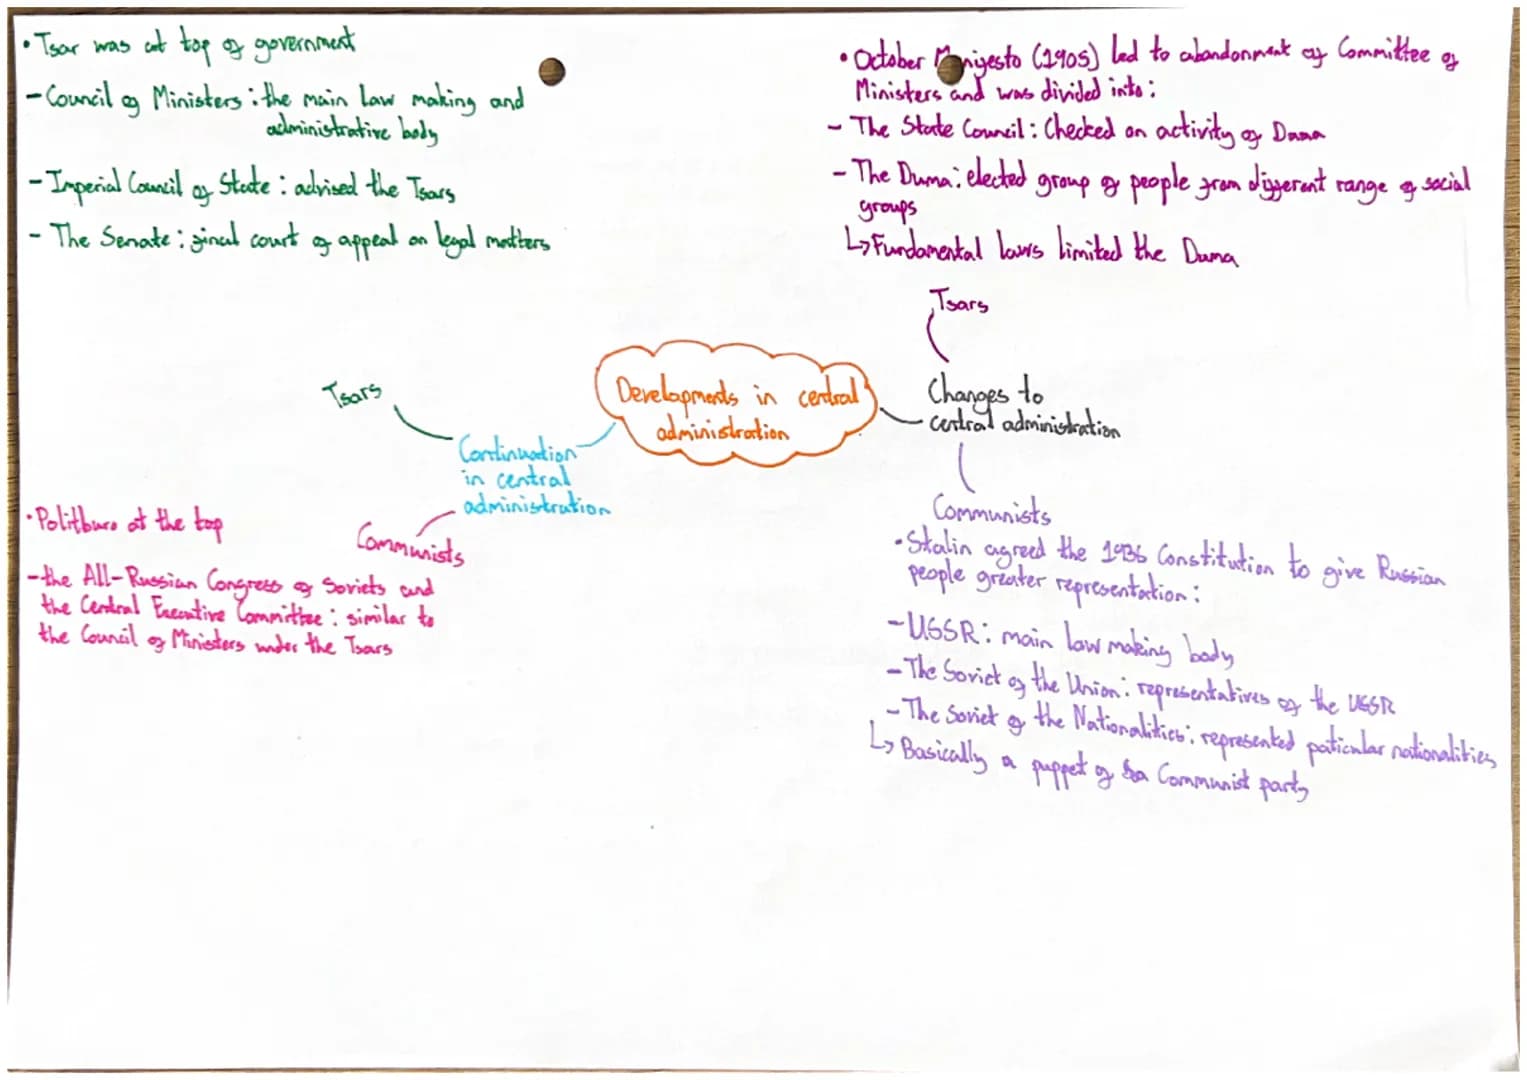 • Tsar was at top of government
- Council of Ministers : the main law making and
administrative body
- Imperial Council of State : advised the Tsars
- The Senate : final court of appeal on legal matters
• October Manifesto (1905) led to abandonment of Committee of
Ministers and was divided into :
- The State Council : Checked on activity of Duma
- The Duma : elected group of people from different range of social
groups
↳ Fundamental laws limited the Duma
Tsars
Changes to
central administration
Developments in central
administration
Tsars
Continuation
in central
administration
Communists
• Politburo at the top
- the All-Russian Congress of Soviets and
the Central Executive Committee : similar to
the Council of Ministers under the Tsars
Communists
• Stalin agreed the 1936 Constitution to give Russian
people greater representation :
- USSR : main law making body
- The Soviet of the Union : representatives of the USSR
- The Soviet of the Nationalities : represented paticular nationalities
↳ Basically a puppet of a Communist party